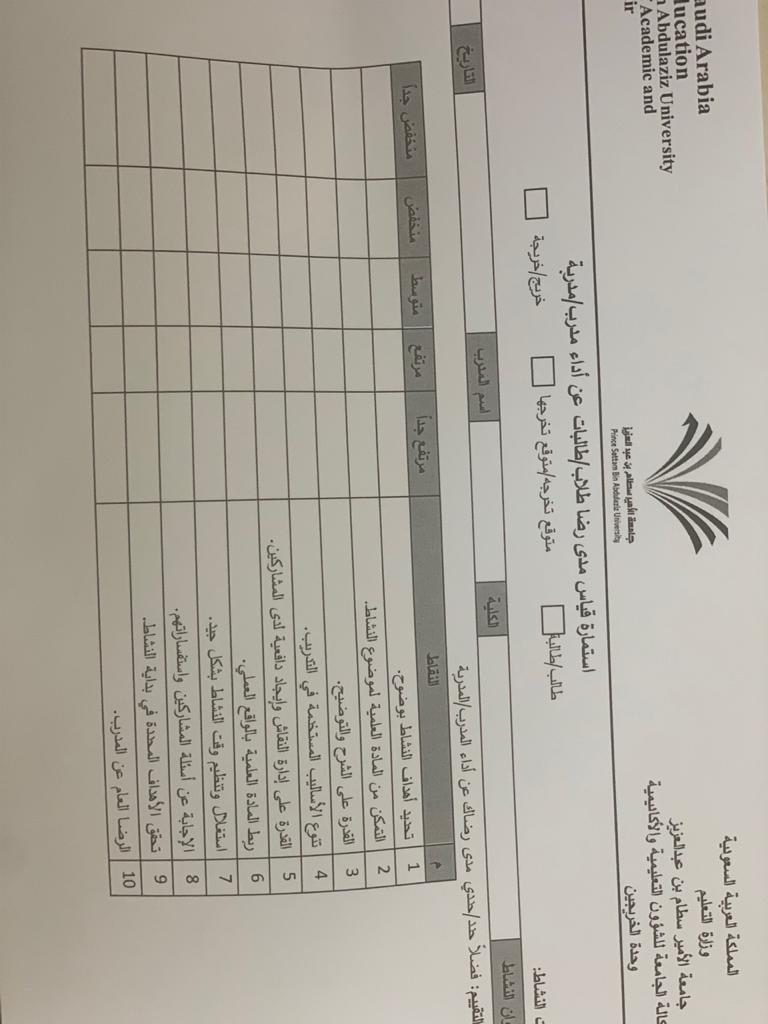 المملكة العربية السعودية
وزارة التعليم
جامعة الأمير سطام بن عبدالعزيز
كالة الجامعة للشؤون التعليمية والأكاديمية
وحدة الخريجين
جامعة الأمير سطام بن عبد العزيز
Prince Sattam Bin Abdulaziz University
audi Arabia
ducation
n Abdulaziz University
Academic and
ir
استمارة قياس مدى رضا طلاب/طالبات عن أداء مدرب/مدربة
ت النشاط: طالب/طالبة متوقع تخرجه/متوقع تخرجها خريج/خريجة
ان النشاط الكلية اسم المدرب التاريخ
التقييم: فضلاً حدد/حددي مدى رضاك عن أداء المدرب/المدربة
م النقاط مرتفع جداً مرتفع متوسط منخفض منخفض جداً
1 تحديد أهداف النشاط بوضوح.
2 التمكن من المادة العلمية لموضوع النشاط.
3 القدرة على الشرح والتوضيح.
4 تنوع الأساليب المستخدمة في التدريب.
5 القدرة على إدارة النقاش وإيجاد دافعية لدى المشاركين.
6 ربط المادة العلمية بالواقع العملي.
7 استغلال وتنظيم وقت النشاط بشكل جيد.
8 الإجابة عن أسئلة المشاركين واستفساراتهم.
9 تحقق الأهداف المحددة في بداية النشاط.
10 الرضا العام عن المدرب.